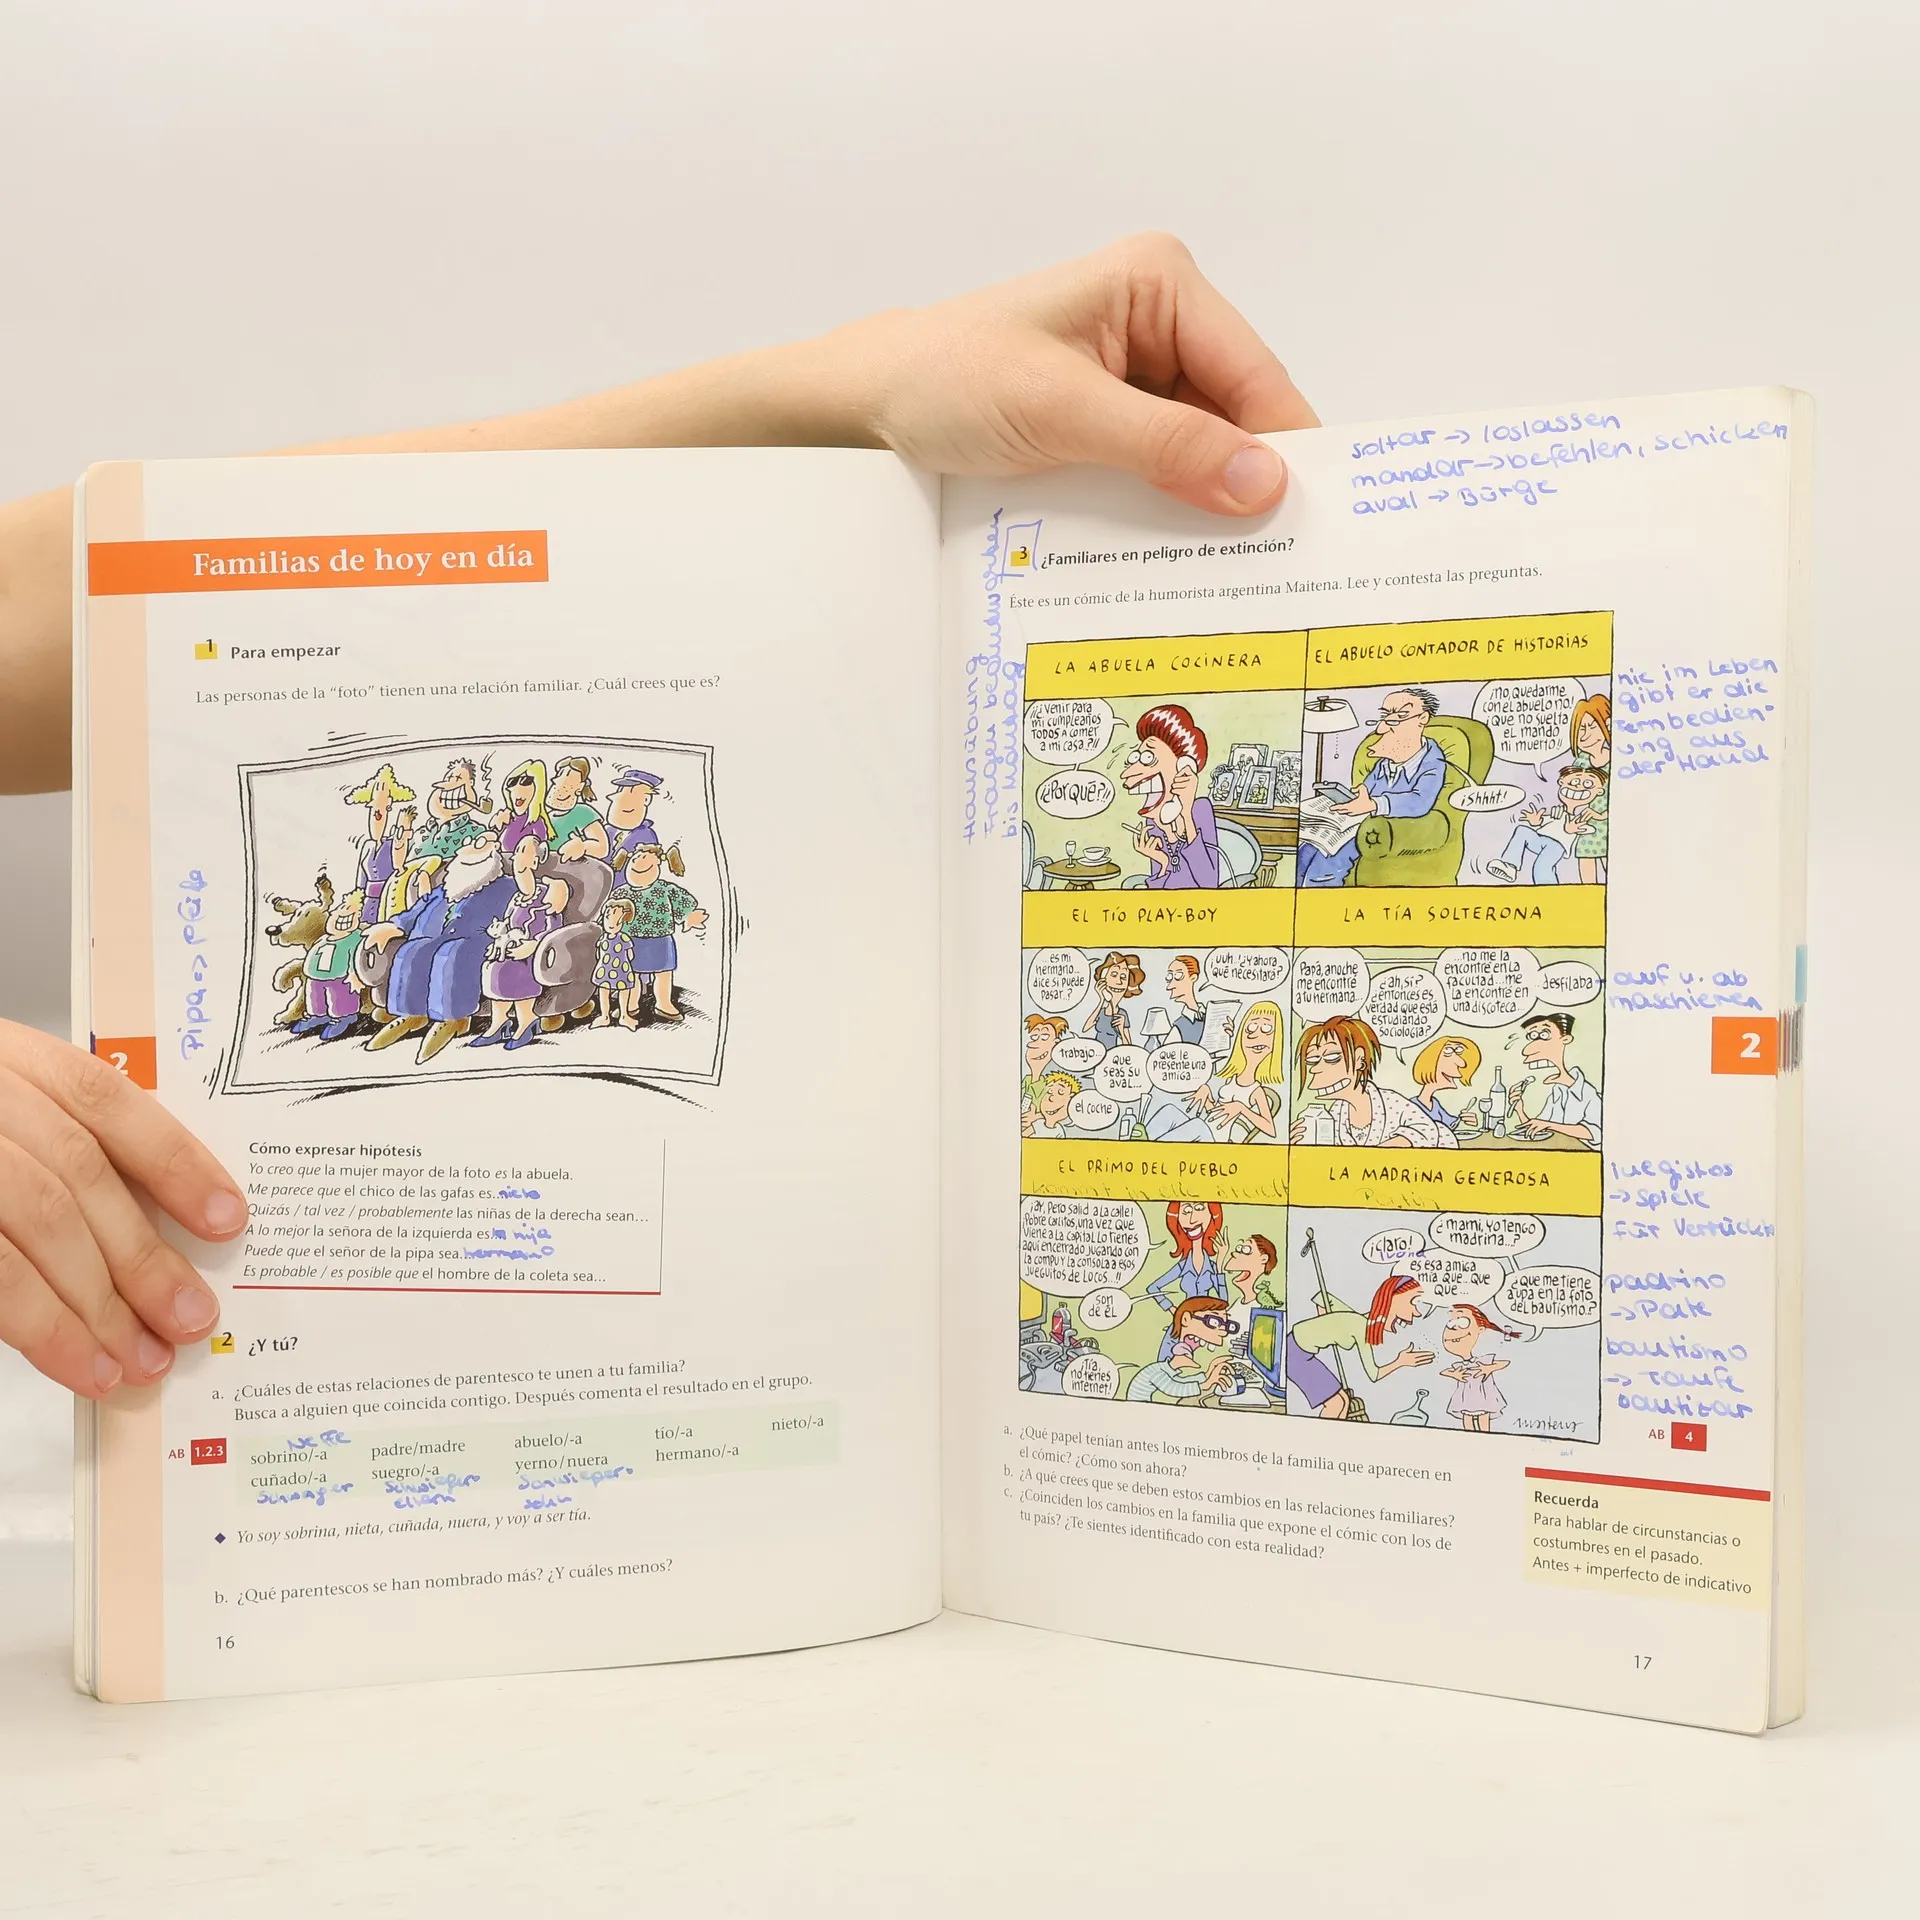 Familias de hoy en día
1 Para empezar
Las personas de la “foto” tienen una relación familiar. ¿Cuál crees que es?
Pipa => Pfeife
2
Cómo expresar hipótesis
Yo creo que la mujer mayor de la foto es la abuela.
Me parece que el chico de las gafas es... nieto
Quizás / tal vez / probablemente las niñas de la derecha sean...
A lo mejor la señora de la izquierda es... hija
Puede que el señor de la pipa sea... hermano
Es probable / es posible que el hombre de la coleta sea...
2 ¿Y tú?
a. ¿Cuáles de estas relaciones de parentesco te unen a tu familia?
Busca a alguien que coincida contigo. Después comenta el resultado en el grupo.
AB 1.2.3
Neffe
sobrino/-a padre/madre abuelo/-a tío/-a nieto/-a
cuñado/-a suegro/-a yerno/nuera hermano/-a
Schwager
◆ Yo soy sobrina, nieta, cuñada, nuera, y voy a ser tía.
b. ¿Qué parentescos se han nombrado más? ¿Y cuáles menos?
16
soltar -> loslassen
mandar -> befehlen, schicken
aval -> Bürge
Hausübung
Fragen beantworten
bis Montag
3 ¿Familiares en peligro de extinción?
Éste es un cómic de la humorista argentina Maitena. Lee y contesta las preguntas.
LA ABUELA COCINERA
¡¿¿ venir para
mi cumpleaños
TODOS A comer
a mi casa ??!!
¿¿Por qué??!!
EL ABUELO CONTADOR DE HISTORIAS
¡no, quedarme
con el abuelo no!
¡Que no suelta
el mando
ni muerto!!
¡Shhht!
nie im Leben
gibt er die
Fernbedien-
ung aus
der Hand
EL TÍO PLAY-BOY
...es mi
hermano...
dice si puede
pasar..?
¡uuh..! ¿y ahora
qué necesitará?
trabajo...
Que
seas su
aval...
Que le
presente una
amiga...
el coche
LA TÍA SOLTERONA
Papá, anoche
me encontré
a tu hermana...
¿ah, sí?
¿entonces es
verdad que está
estudiando
sociología?
...no me la
encontré en la
facultad...me
la encontré en
una discoteca...
desfilaba
auf u. ab
maschieren
2
EL PRIMO DEL PUEBLO
¡ay, pero salid a la calle!
¡Pobre Carlitos, una vez que
viene a la capital lo tienes
aquí encerrado jugando con
la compu y la consola a esos
jueguitos de locos...!!
son
de él
¡Tía,
no tienes
internet!
LA MADRINA GENEROSA
¿mami, yo tengo
madrina...?
¡claro!
es esa amiga
mía que.. que
que...
¿Que me tiene
a upa en la foto
del bautismo?
maitena
juegistos
-> Spiele
für Verrückte
padrino
-> Pate
bautismo
-> Taufe
bautizar
AB 4
a. ¿Qué papel tenían antes los miembros de la familia que aparecen en
el cómic? ¿Cómo son ahora?
b. ¿A qué crees que se deben estos cambios en las relaciones familiares?
c. ¿Coinciden los cambios en la familia que expone el cómic con los de
tu país? ¿Te sientes identificado con esta realidad?
Recuerda
Para hablar de circunstancias o
costumbres en el pasado.
Antes + imperfecto de indicativo
17